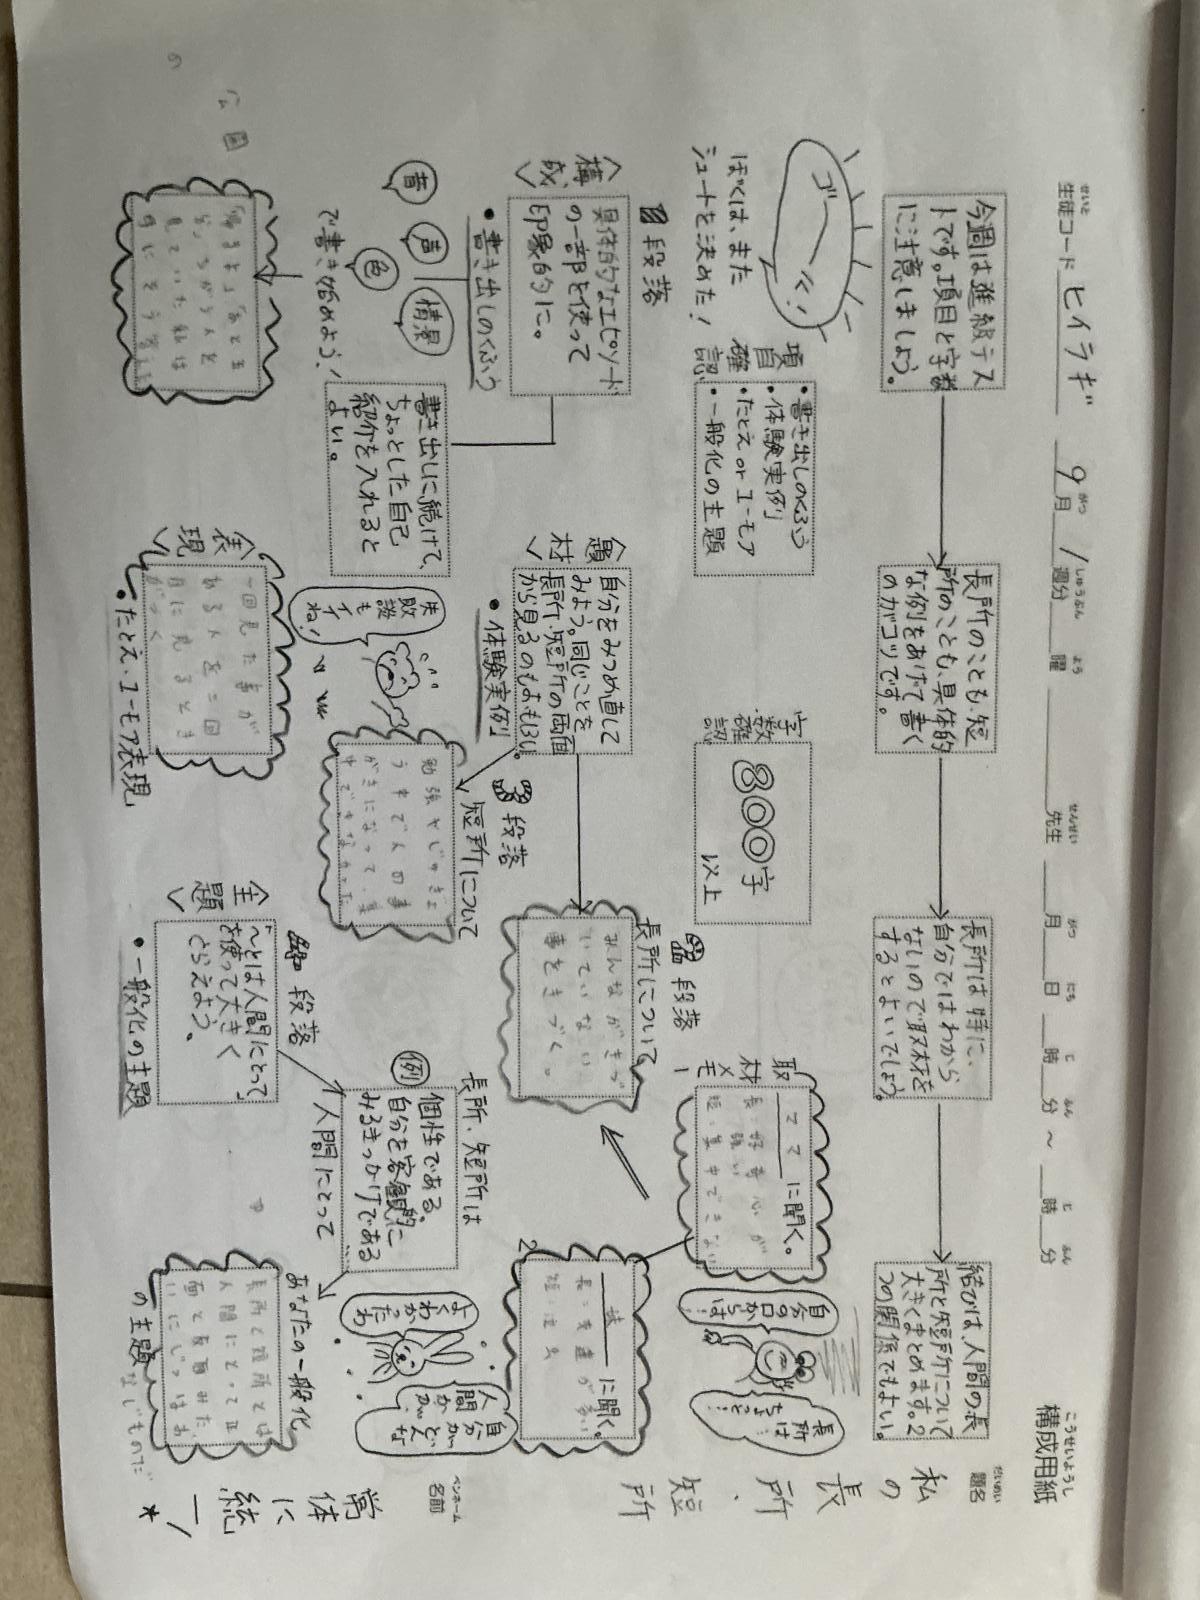 構成用紙
こうせいようし
生徒コード ヒイラギ 9月 1週分 曜 先生 月 日 時 分 ～ 時 分
題名
だいめい
私の長所、短所
ペンネーム
名前
常体に統一*
今週は進級テス
トです。項目と字数
に注意しましょう。
長所のことも、短
所のことも、具体的
な例をあげて書く
のがコツです。
長所は特に、
自分ではわから
ないので取材を
するとよいでしょう。
結びは、人間の長
所と短所について
大きくまとめます。2
つの関係でもよい。
ゴーール！
ぼくは、また
シュートを決めた！
項目確認
・書き出しのくふう
・体験実例
・たとえ or ユーモア
・一般化の主題
字数確認
800字
以上
取材メモ
1
ママに聞く。
長：好奇心が
強い
短：集中できない
自分の口からは…
長所は
ちょっと…
2
妹に聞く。
〈構成〉
段落
具体的なエピソード
の一部を使って
印象的に。
・書き出しのくふう
音
声
色
情景
で書き始めよう！
書き出しに続けて、
ちょっとした自己
紹介を入れると
よい。
〈題材〉
自分をみつめ直して
みよう。同じことを
長所・短所の両面
から見るのもおもしろい。
・体験実例
失敗話も
イイね！
段落
短所について
段落
長所について
みんながきづ
いていない
事をきづく。
〈表現〉
一回見た事が
ある人を二回
目に見るとき
・たとえ・ユーモア表現
〈主題〉
段落
「〜とは人間にとって」
を使って大きく
とらえよう。
・一般化の主題
人間にとって
長所、短所は
例
個性である
自分を客観的に
みるきっかけである
よく
わかったわ
自分がどんな
人間かが
あなたの一般化
の主題
長所と短所とは
人間にとって正